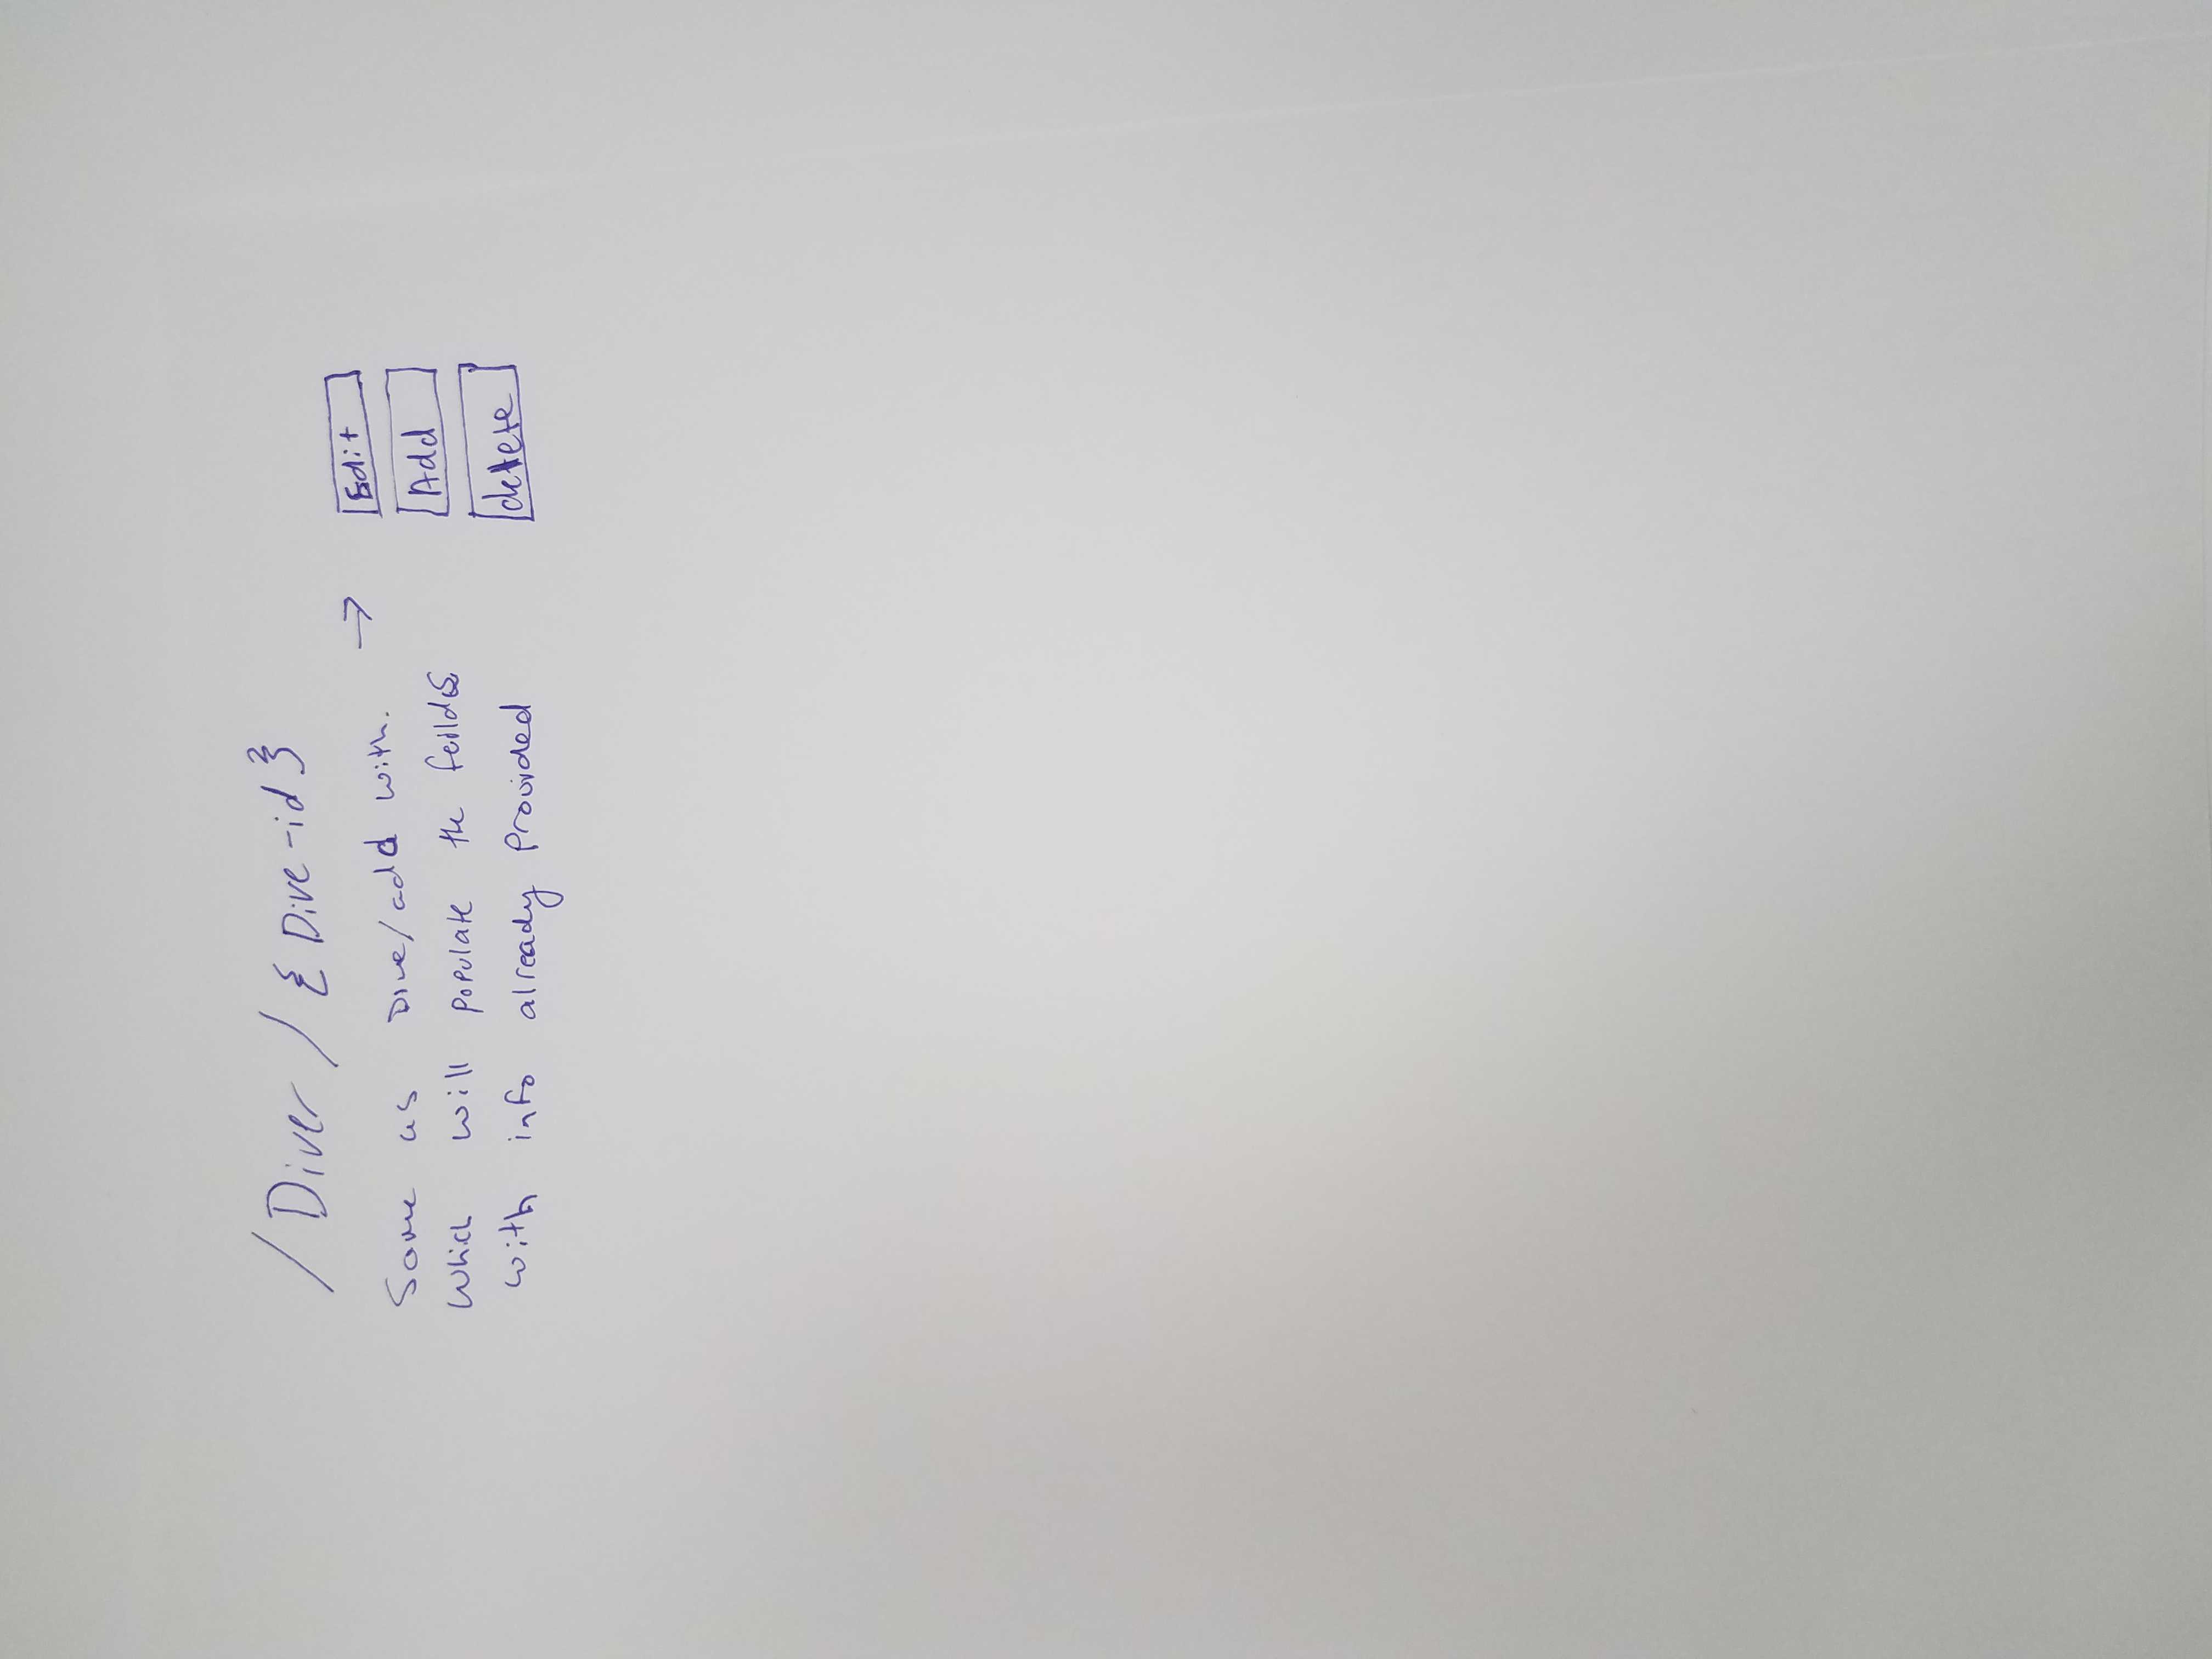 / Diver / { Dive-id }
Same as Dive/add with. →
Edit
Which will populate the feilds
Add
with info already provided
delete